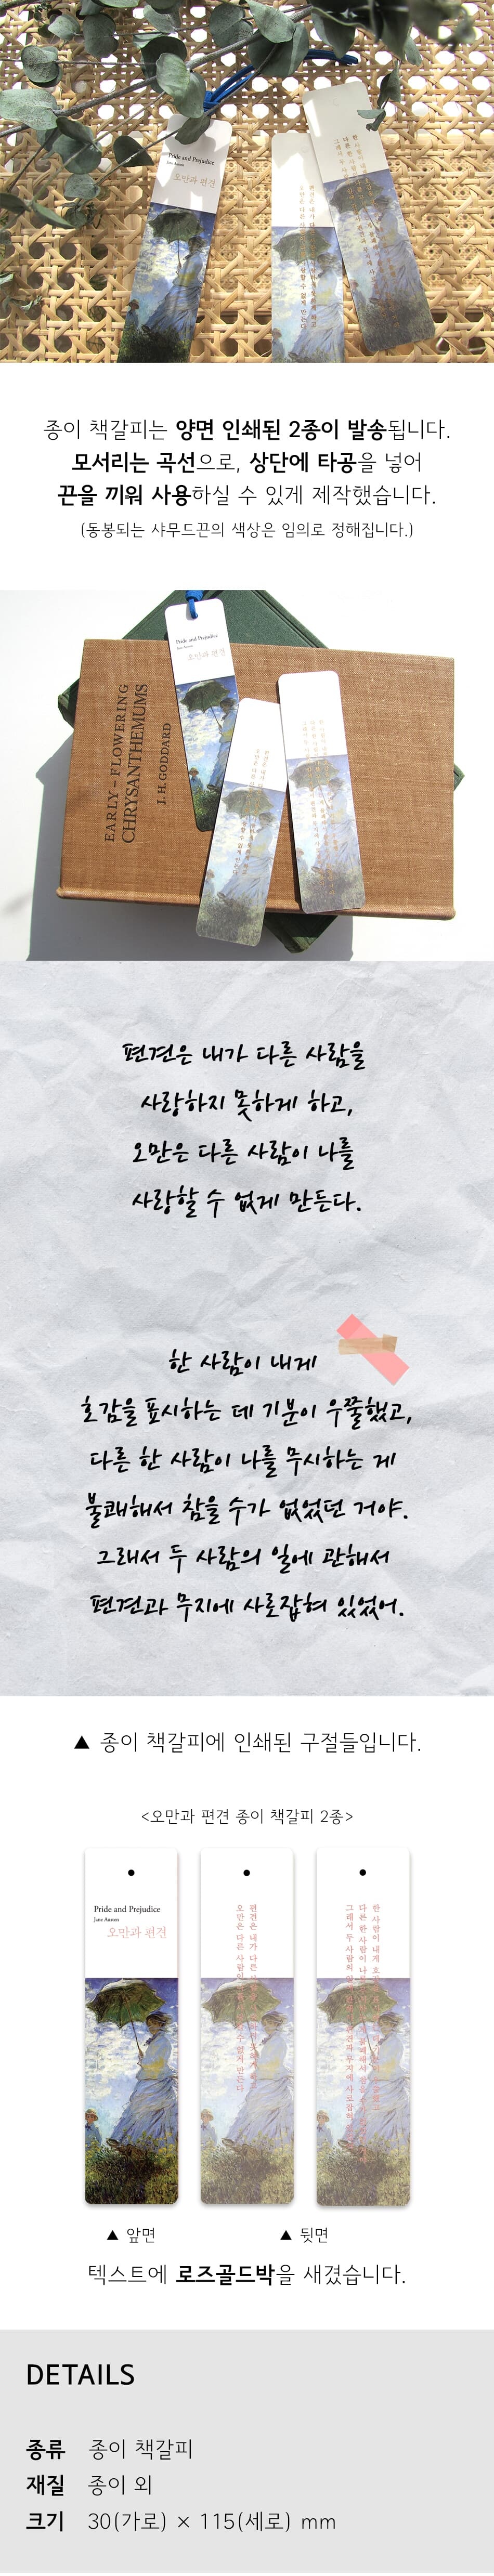 Pride and Prejudice
Jane Austen
오만과 편견
종이 책갈피는 양면 인쇄된 2종이 발송됩니다.
모서리는 곡선으로, 상단에 타공을 넣어
끈을 끼워 사용하실 수 있게 제작했습니다.
(동봉되는 샤무드끈의 색상은 임의로 정해집니다.)
Pride and Prejudice
Jane Austen
오만과 편견
EARLY-FLOWERING
CHRYSANTHEMUMS
J. H. GODDARD
편견은 내가 다른 사람을
사랑하지 못하게 하고,
오만은 다른 사람이 나를
사랑할 수 없게 만든다.
한 사람이 내게
호감을 표시하는 데 기분이 우쭐했고,
다른 한 사람이 나를 무시하는 게
불쾌해서 참을 수가 없었던 거야.
그래서 두 사람의 일에 관해서
편견과 무지에 사로잡혀 있었어.
▲ 종이 책갈피에 인쇄된 구절들입니다.
<오만과 편견 종이 책갈피 2종>
Pride and Prejudice
Jane Austen
오만과 편견
▲ 앞면
▲ 뒷면
텍스트에 로즈골드박을 새겼습니다.
DETAILS
종류 종이 책갈피
재질 종이 외
크기 30(가로) × 115(세로) mm